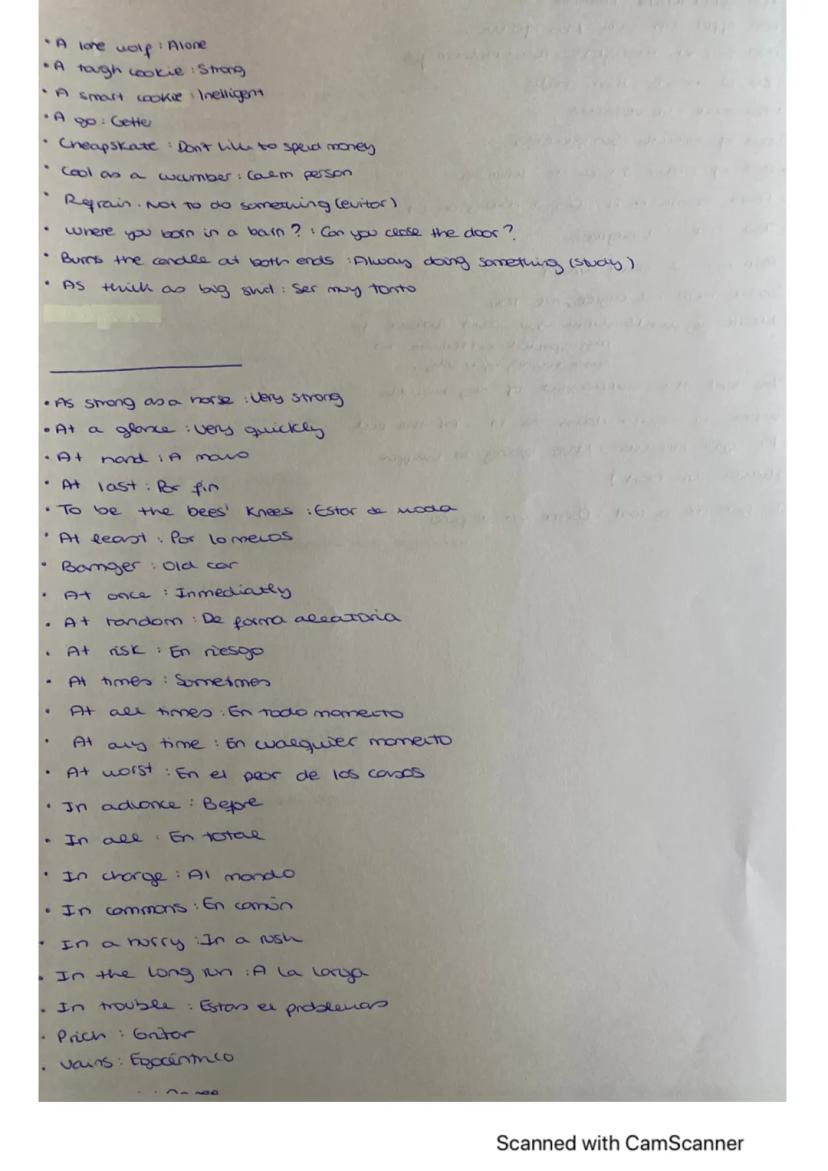 • A lone wolf : Alone
• A tough cookie : Strong
• A smart cookie : Inelligent
• A go : Getter
• Cheapskate : Don't like to spend money
• Cool as a cucumber : Calm person
• Refrain : Not to do something (evitar)
• Where you born in a barn? : Can you close the door?
• Burns the candle at both ends : Always doing something (study)
• As thick as big shit : Ser muy tonto
• As strong as a horse : Very strong
• At a glance : Very quickly
• At hand : A mano
• At last : Por fin
• To be the bees' knees : Estar de moda
• At least : Por lo menos
• Banger : Old car
• At once : Inmediatly
• At random : De forma aleatoria
• At risk : En riesgo
• At times : Sometimes
• At all times : En todo momento
• At any time : En cualquier momento
• At worst : En el peor de los casos
• In advance : Before
• In all : En total
• In charge : Al mando
• In commons : En común
• In a hurry : In a rush
• In the long run : A la larga
• In trouble : Estar en problemas
• Prich : Gritar
• Vains : Egocéntrico
Scanned with CamScanner